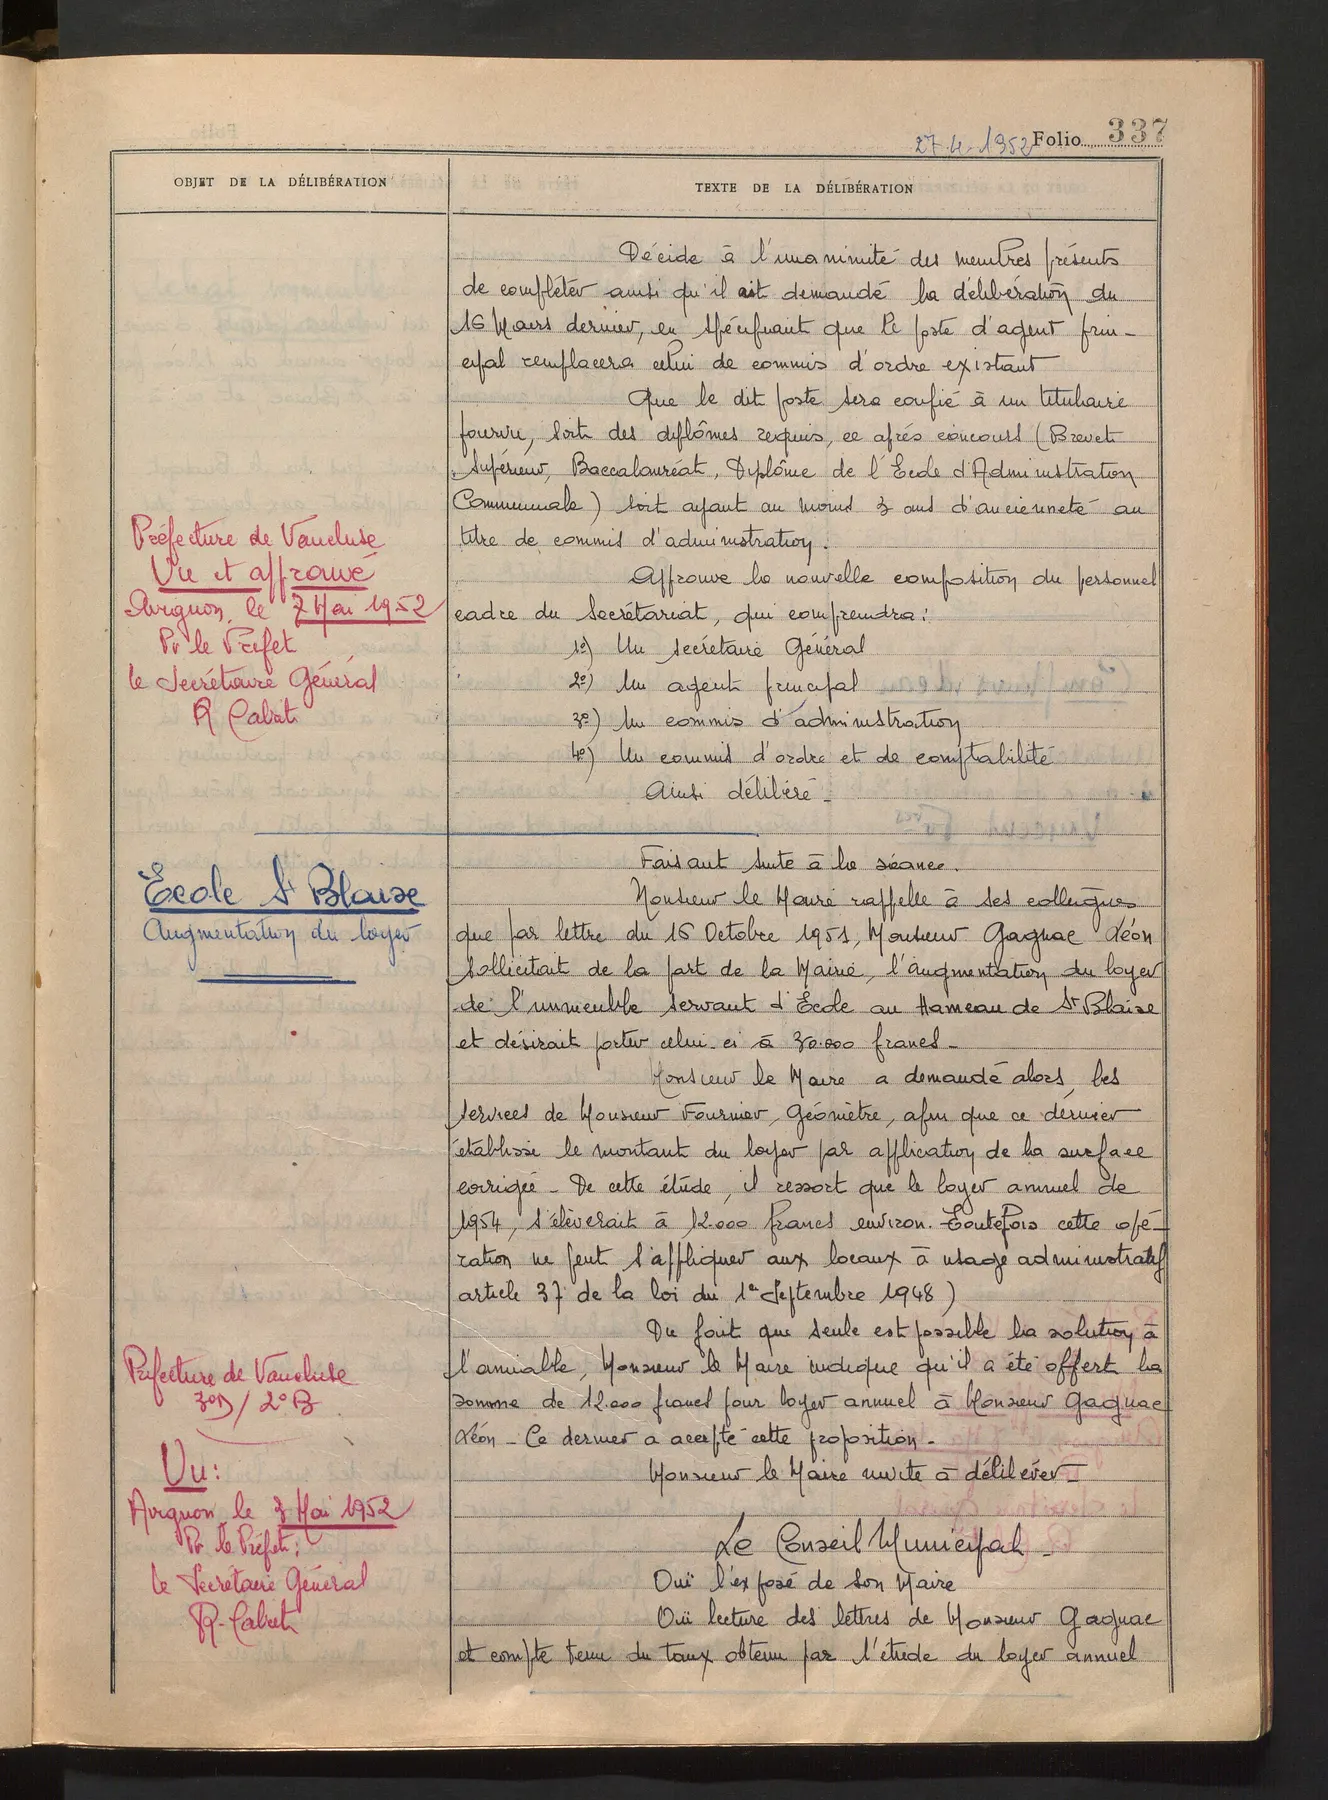 27-4-1952 Folio 337
OBJET DE LA DÉLIBÉRATION
TEXTE DE LA DÉLIBÉRATION
Décide à l'unanimité des membres présents
de compléter ainsi qu'il est demandé la délibération du
16 Mars dernier, en spécifiant que le poste d'agent prin-
cipal remplacera celui de commis d'ordre existant
Que le dit poste sera confié à un titulaire
pourvu, soit des diplômes requis, ce après concours (Brevet
Supérieur, Baccalauréat, Diplôme de l'Ecole d'Administration
Communale) soit ayant au moins 3 ans d'ancienneté au
titre de commis d'administration.
Approuve la nouvelle composition du personnel
cadre du Secrétariat, qui comprendra:
1º) Un secrétaire Général
2º) Un agent principal
3º) Un commis d'administration
4º) Un commis d'ordre et de comptabilité
Ainsi délibéré -
Préfecture de Vaucluse
Vu et approuvé
Avignon, le 7 Mai 1952
Pr le Préfet
le Secrétaire Général
R Cabrit
Ecole St Blaise
Augmentation du loyer
Faisant suite à la séance.
Monsieur le Maire rappelle à ses collègues
que par lettre du 16 Octobre 1951, Monsieur Gagnac Léon
sollicitait de la part de la Mairie, l'augmentation du loyer
de l'immeuble servant d'Ecole au Hameau de St Blaise
et désirait porter celui-ci à 30.000 francs -
Monsieur le Maire a demandé alors, les
services de Monsieur Fournier, Géomètre, afin que ce dernier
établisse le montant du loyer par application de la surface
corrigée - De cette étude, il ressort que le loyer annuel de
1954, s'élèverait à 12.000 francs environ. Toutefois cette opé-
ration ne peut s'appliquer aux locaux à usage administratif
article 37 de la loi du 1er Septembre 1948)
Du fait que seule est possible la solution à
l'amiable, Monsieur le Maire indique qu'il a été offert la
somme de 12.000 francs pour loyer annuel à Monsieur Gagnac
Léon - Ce dernier a accepté cette proposition -
Monsieur le Maire invite à délibérer -
Préfecture de Vaucluse
3ºD/2ºB
Vu:
Avignon, le 7 Mai 1952
Pr le Préfet:
le Secrétaire Général
R-Cabrit
Le Conseil Municipal -
Ouï l'exposé de son Maire
Ouï lecture des lettres de Monsieur Gagnac
et compte tenu du taux obtenu par l'étude du loyer annuel